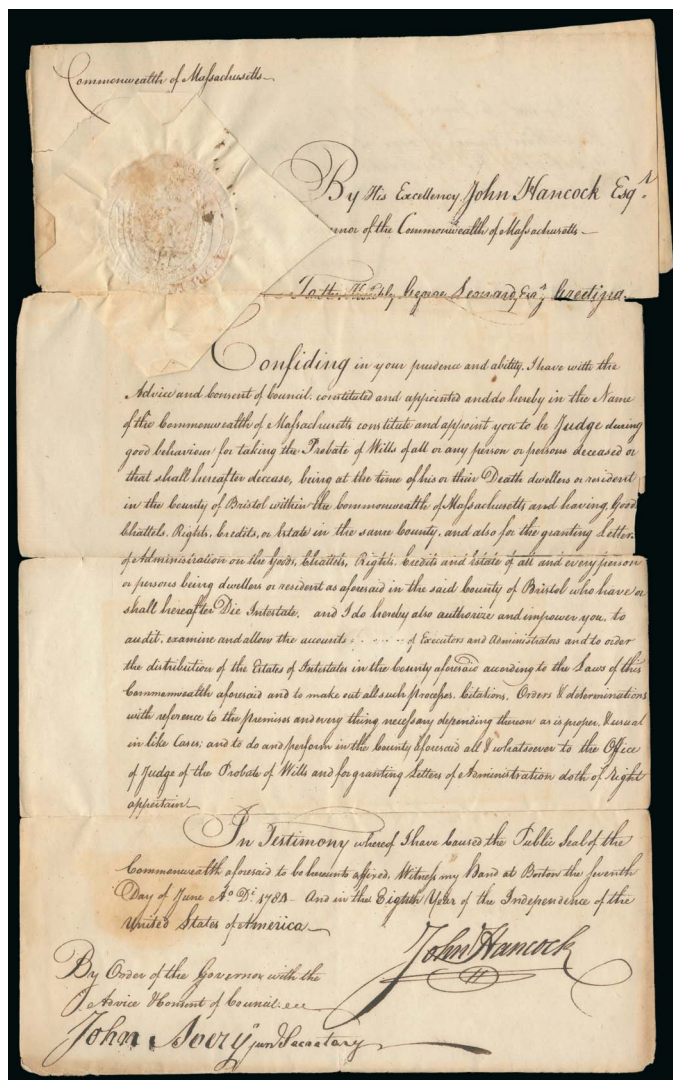 Commonwealth of Massachusetts
By His Excellency John Hancock Esqr.
nor of the Commonwealth of Massachusetts
To the George Leonard, Esqr. Greeting.
Confiding in your prudence and ability, I have with the
Advice and Consent of Council, constituted and appointed and do hereby in the Name
of the Commonwealth of Massachusetts constitute and appoint you to be Judge during
good behaviour for taking the Probate of Wills of all or any person or persons deceased or
that shall hereafter decease, being at the time of his or their Death dwellers or resident
in the County of Bristol within the Commonwealth of Massachusetts and having Good
Chattels, Rights, Credits, or Estate in the same County, and also for the granting Letter
of Administration on the Goods, Chattels, Rights, Credits and Estate of all and every person
or persons being dwellers or resident as aforesaid in the said County of Bristol who have or
shall hereafter Die Intestate, and I do hereby also authorize and impower you, to
audit, examine and allow the accounts - - - - - of Executors and Administrators and to order
the distribution of the Estates of Intestates in the County aforesaid according to the Laws of this
Commonwealth aforesaid and to make out all such Processes, Citations, Orders & determinations
with reference to the premises and every thing necessary depending thereon as is proper, & usual
in like Cases; and to do and perform in the County aforesaid all & whatsoever to the Office
of Judge of the Probate of Wills and for granting Letters of Administration doth of Right
appertain
In Testimony whereof I have caused the Public Seal of the
Commonwealth aforesaid to be hereunto affixed. Witness my Hand at Boston the seventh
Day of June Ao. Di. 1784 And in the Eighth Year of the Independence of the
United States of America
John Hancock
By Order of the Governor with the
Advice & Consent of Council
John Avery jun Secretary